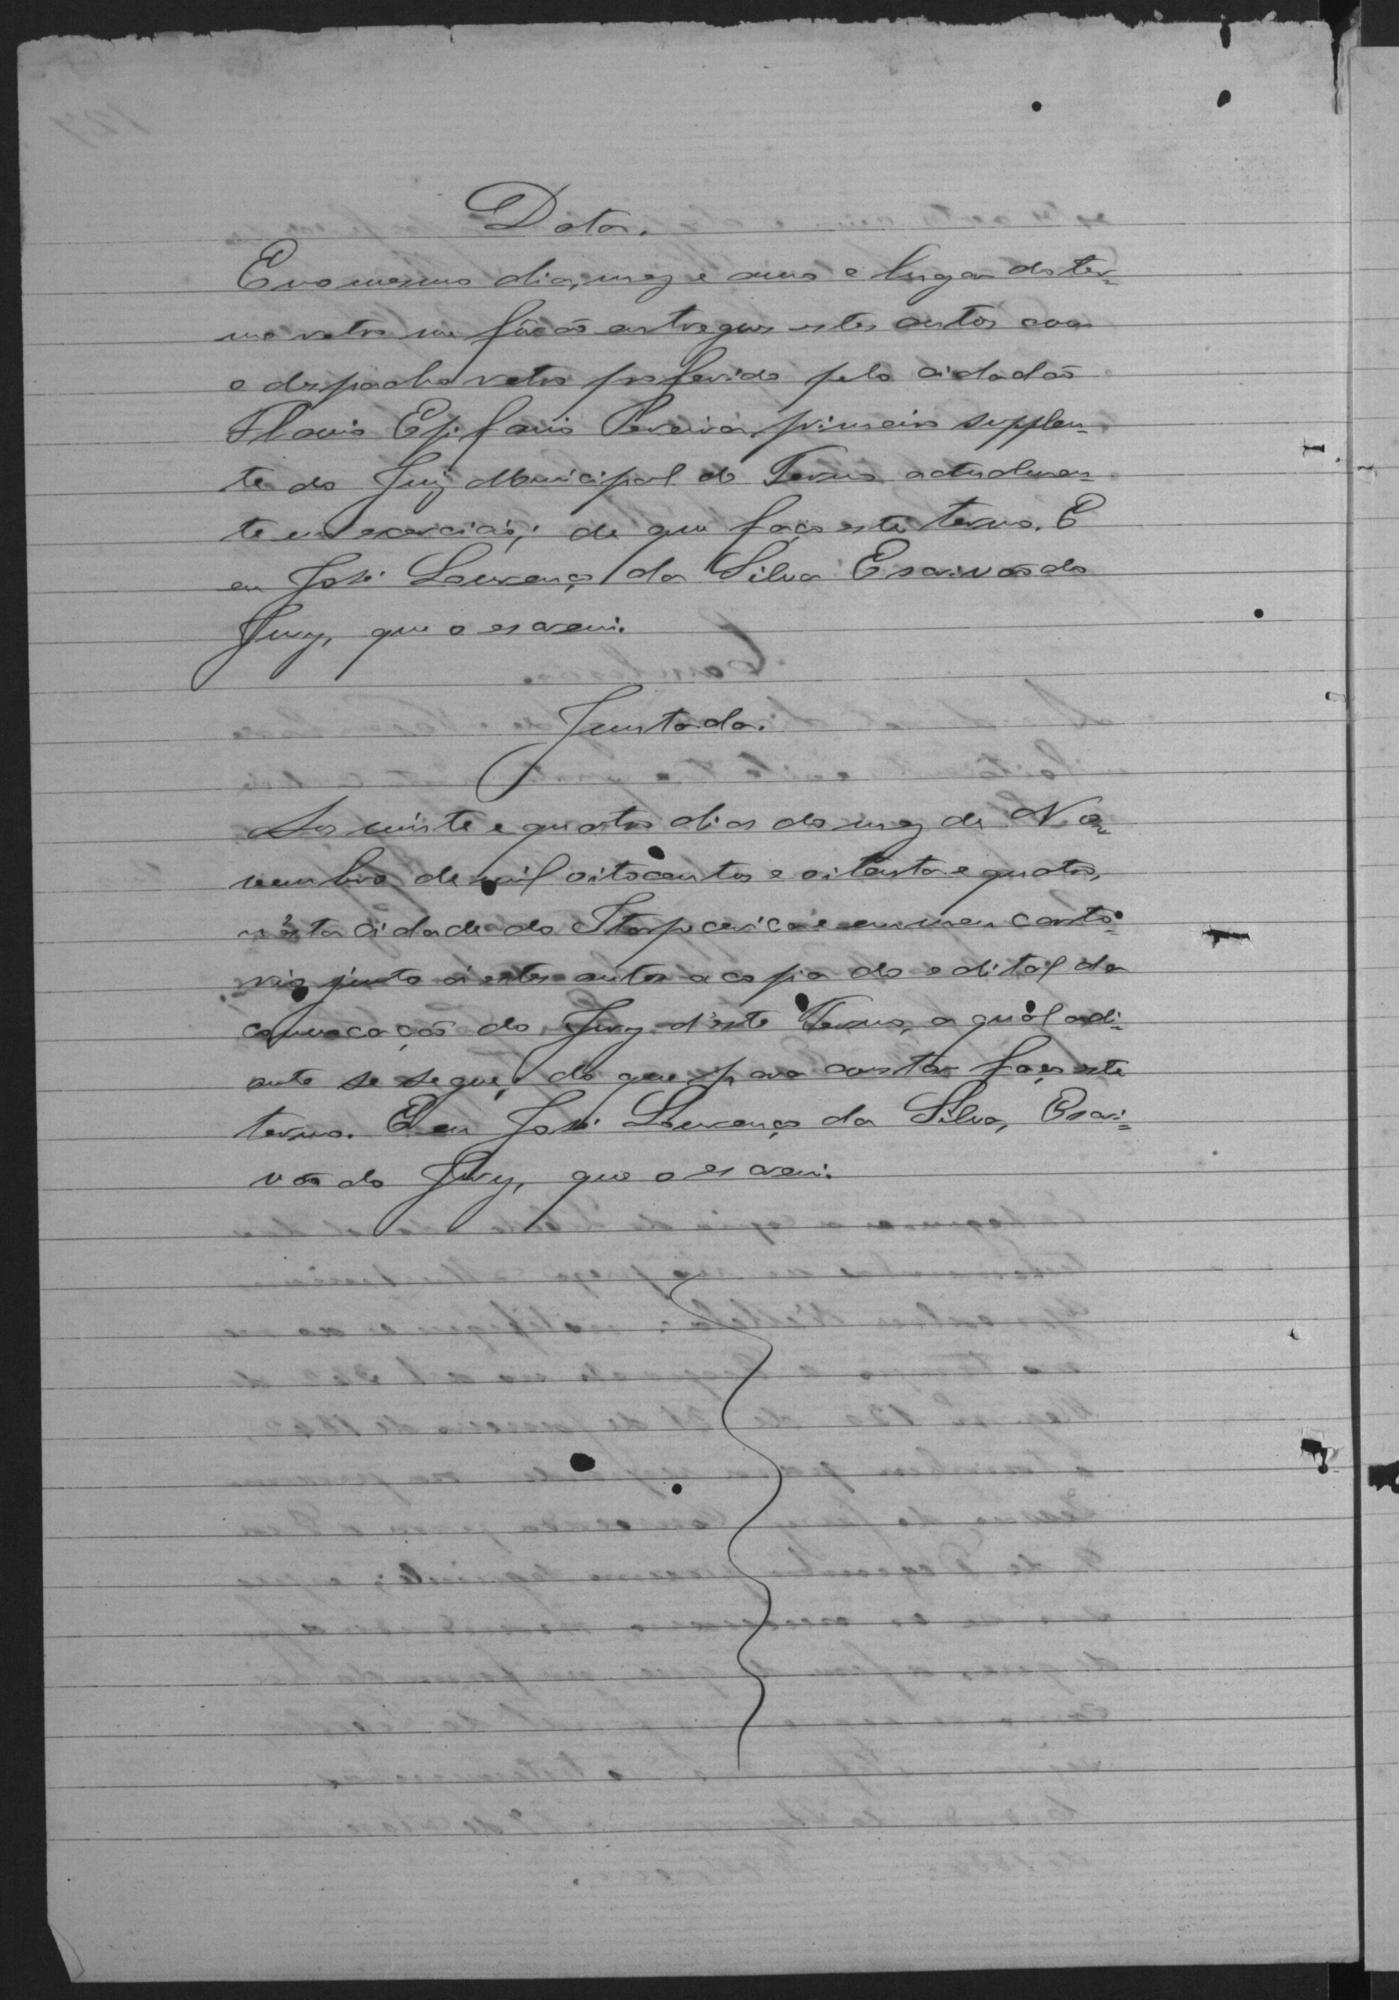 Data.
E no mesmo dia, mez e anno e lugar do ter-
mo retro me fôrão entregues estes autos com
o despacho retro proferido pelo cidadão
Flavio Epifanio Pereira, primeiro supplen-
te do Juiz Municipal do Termo actualmen-
te em exercicio; de que faço este termo. E
eu José Lourenço da Silva Escrivão do
Jury, que o escrevi.
Juntada.
Aos vinte e quatro dias do mez de No-
vembro de mil oitocentos e oitenta e quatro,
n'esta cidade do Itapecerica e em meu carto-
rio junto á estes autos a copia do edital da
convocação do Jury d'este Termo, a qual adi-
ante se segue; do que para constar faço este
termo. E eu José Lourenço da Silva, Escri-
vão do Jury, que o escrevi.